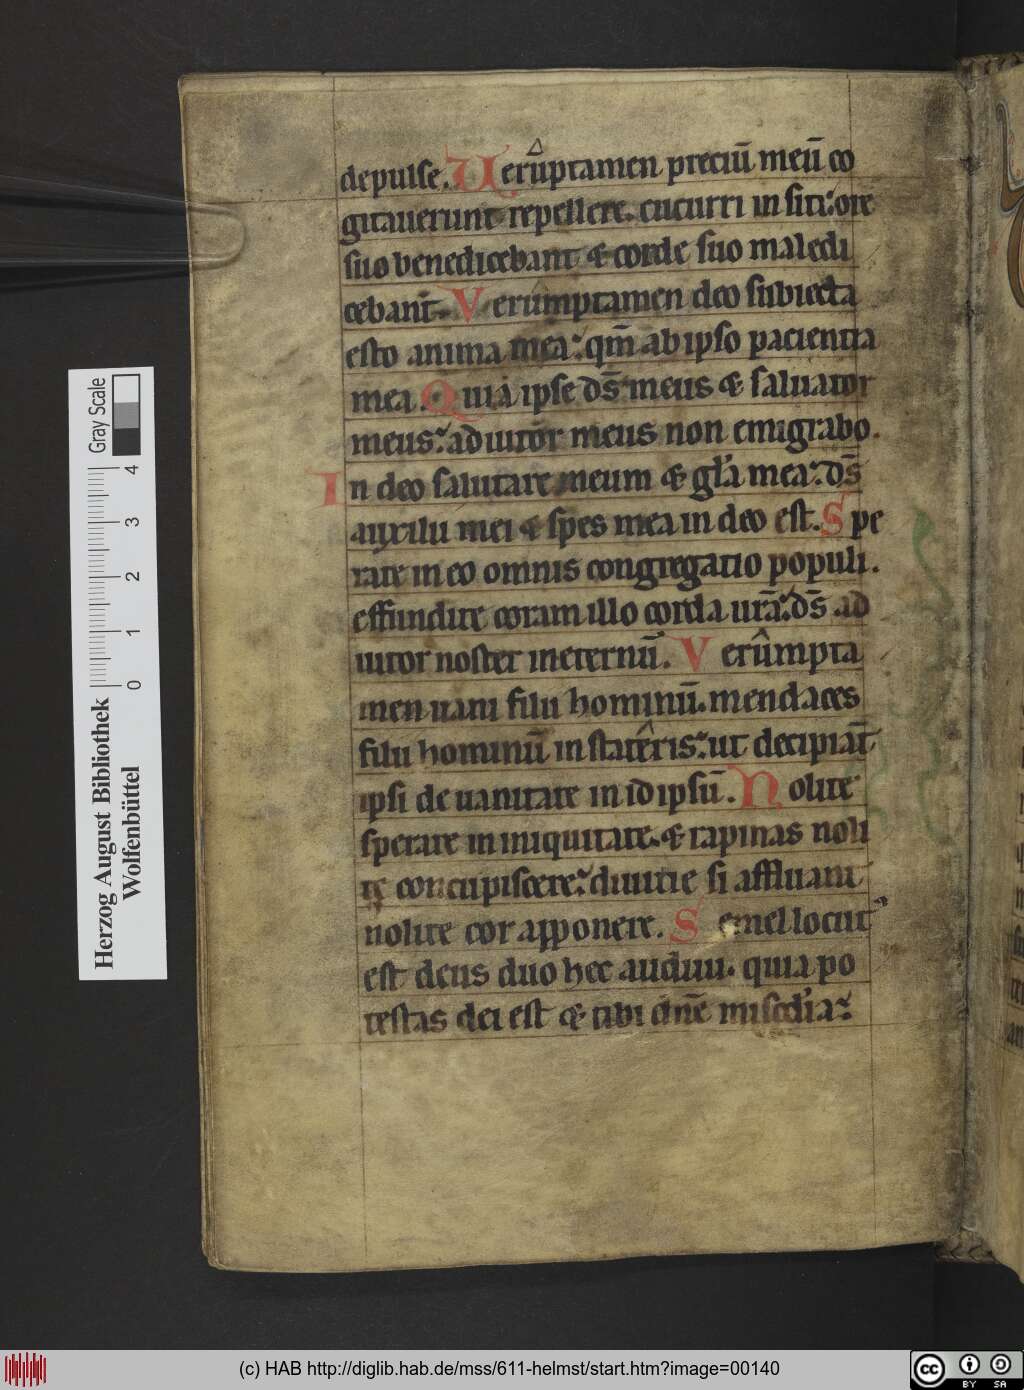 depulse. Uerũptamen preciũ meũ co
gitauerunt repellere. cucurri in siti: ore
suo benedicebant & corde suo maledi
cebant. Verũmptamen deo subiecta
esto anima mea: qm̄ ab ipso pacientia
mea. Quia ipse ds̄ meus & saluator
meus: adiutor meus non emigrabo.
In deo salutare meum & gl̄a mea: ds̄
auxilii mei & spes mea in deo est. Spe
rate in eo omnis congregatio populi.
effundite coram illo corda ur̄a: ds̄ ad
iutor noster ineternū. Verũmpta
men uani filii hominū. mendaces
filii hominū in stateris: ut decipiāt
ipsi de uanitate in idipsū. Nolite
sperare in iniquitate. & rapinas noli
te concupiscere: diuitie si affluant
nolite cor apponere. Semel locut᾿
est deus duo hec audiui. quia po
testas dei est & tibi dn̄e misc̄dia:
Gray Scale
4
3
2
1
0
Herzog August Bibliothek
Wolfenbüttel
(c) HAB http://diglib.hab.de/mss/611-helmst/start.htm?image=00140
cc BY SA